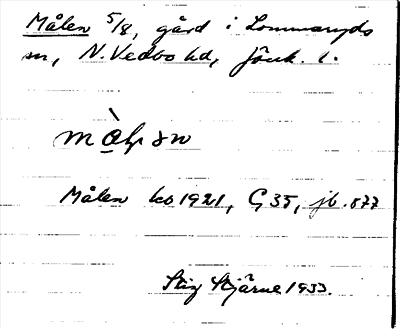 Målen 5/8, gård i Lommaryds
sn, N. Vedbo hd, Jönk. l.
Målen ko 1921, G35, jb. 877
Stig Stjärne 1933.